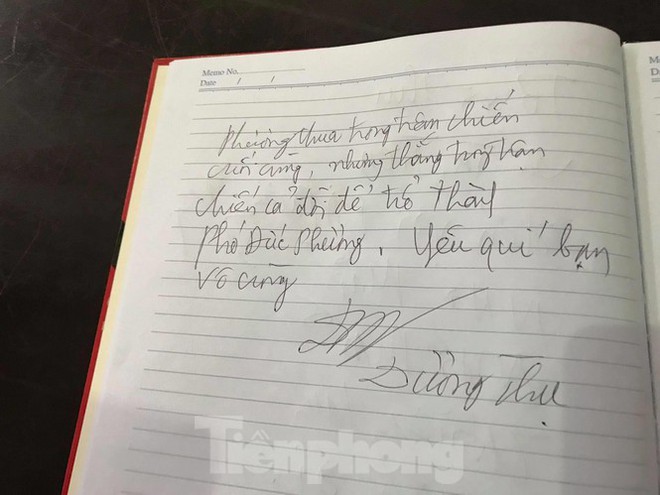 Memo No.
Date / /
Phương thua trong trận chiến
cuối cùng, nhưng thắng trong trận
chiến cả đời để trở thành
Phó Đức Phương. Yêu quí bạn
vô cùng
Dương Thụ
Tiềnphong
M
D